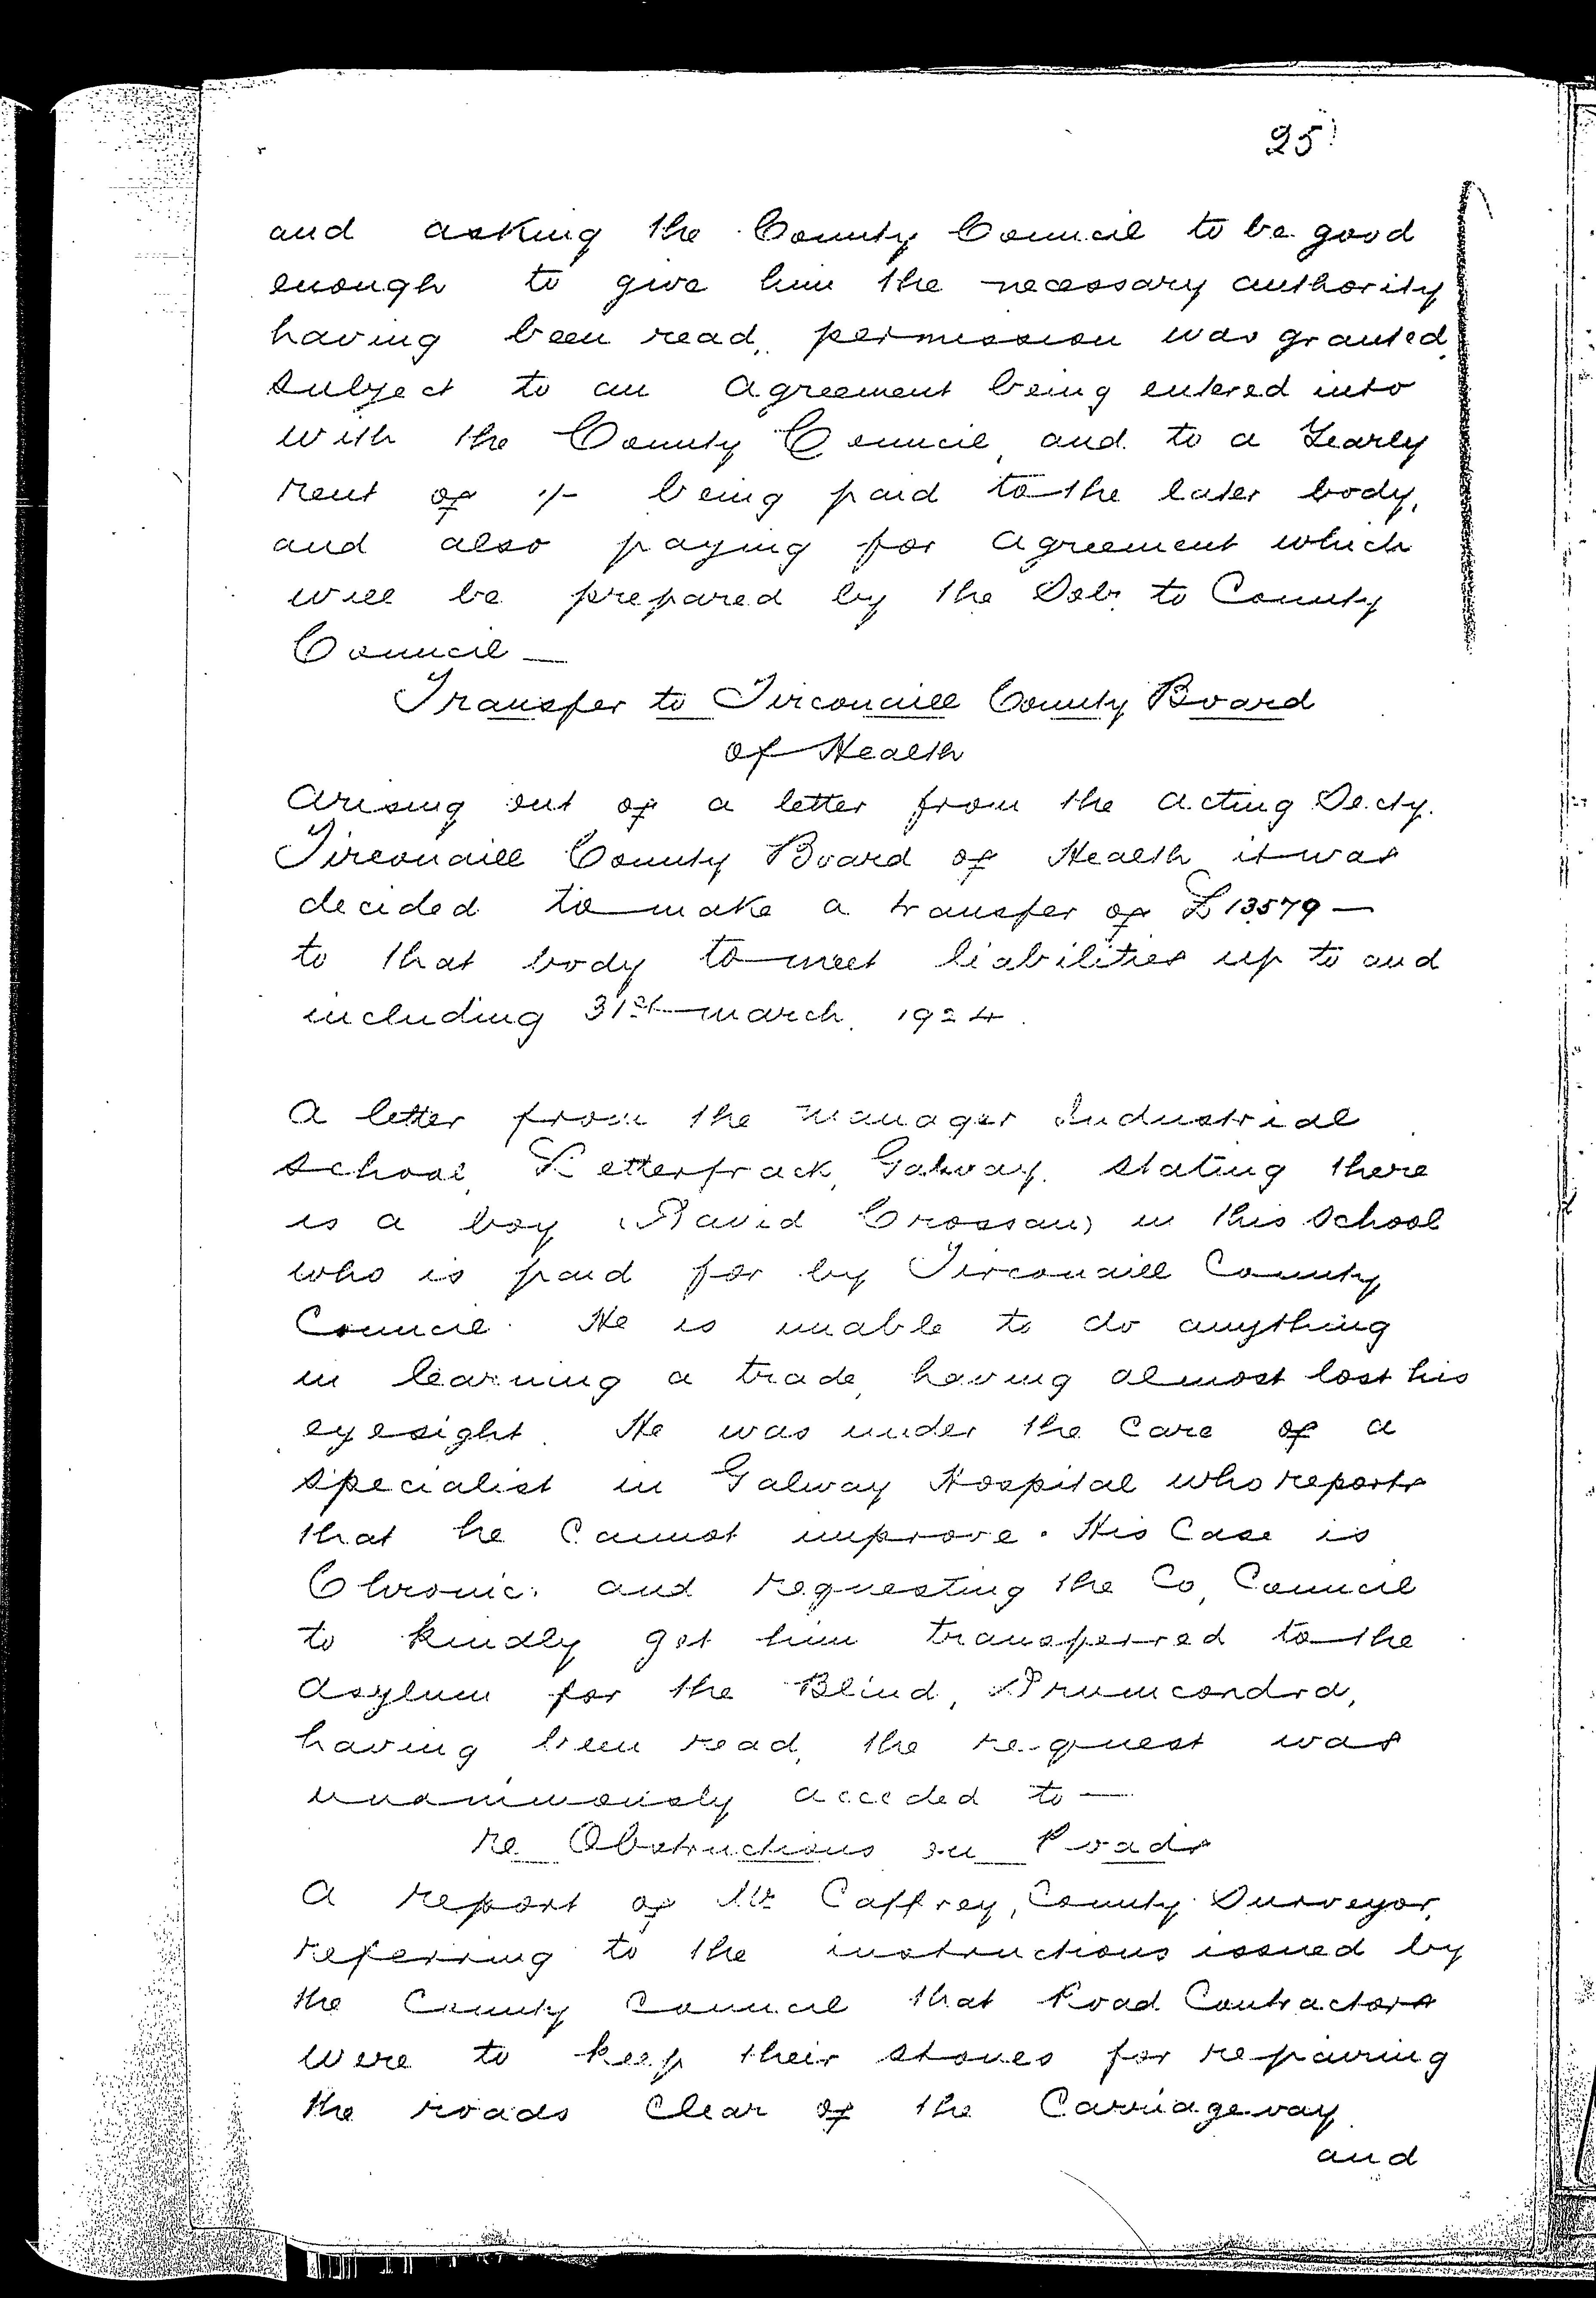 25
and asking the County Council to be good
enough to give him the necessary authority
having been read, permission was granted,
subject to an Agreement being entered into
with the County Council, and to a Yearly
rent of 1/- being paid to the later body,
and also paying for Agreement which
will be prepared by the Solr. to County
Council —
Transfer to Tirconaill County Board
of Health
Arising out of a letter from the Acting Secty.
Tirconaill County Board of Health it was
decided to make a transfer of £13579 —
to that body to meet liabilities up to and
including 31st March, 1924.
A letter from the Manager Industrial
School, Letterfrack, Galway, stating there
is a boy (David Crossan) in this School
who is paid for by Tirconaill County
Council. He is unable to do anything
in learning a trade, having almost lost his
eyesight. He was under the care of a
Specialist in Galway Hospital who reports
that he cannot improve. His Case is
Chronic, and requesting the Co, Council
to kindly get him transferred to the
Asylum for the Blind, Drumcondra,
having been read, the request was
unanimously acceded to —
re Obstructions on Roads
A report of Mr Caffrey, County Surveyor,
referring to the instructions issued by
the County Council that Road Contractors
were to keep their stones for repairing
the roads Clear of the Carriageway
and